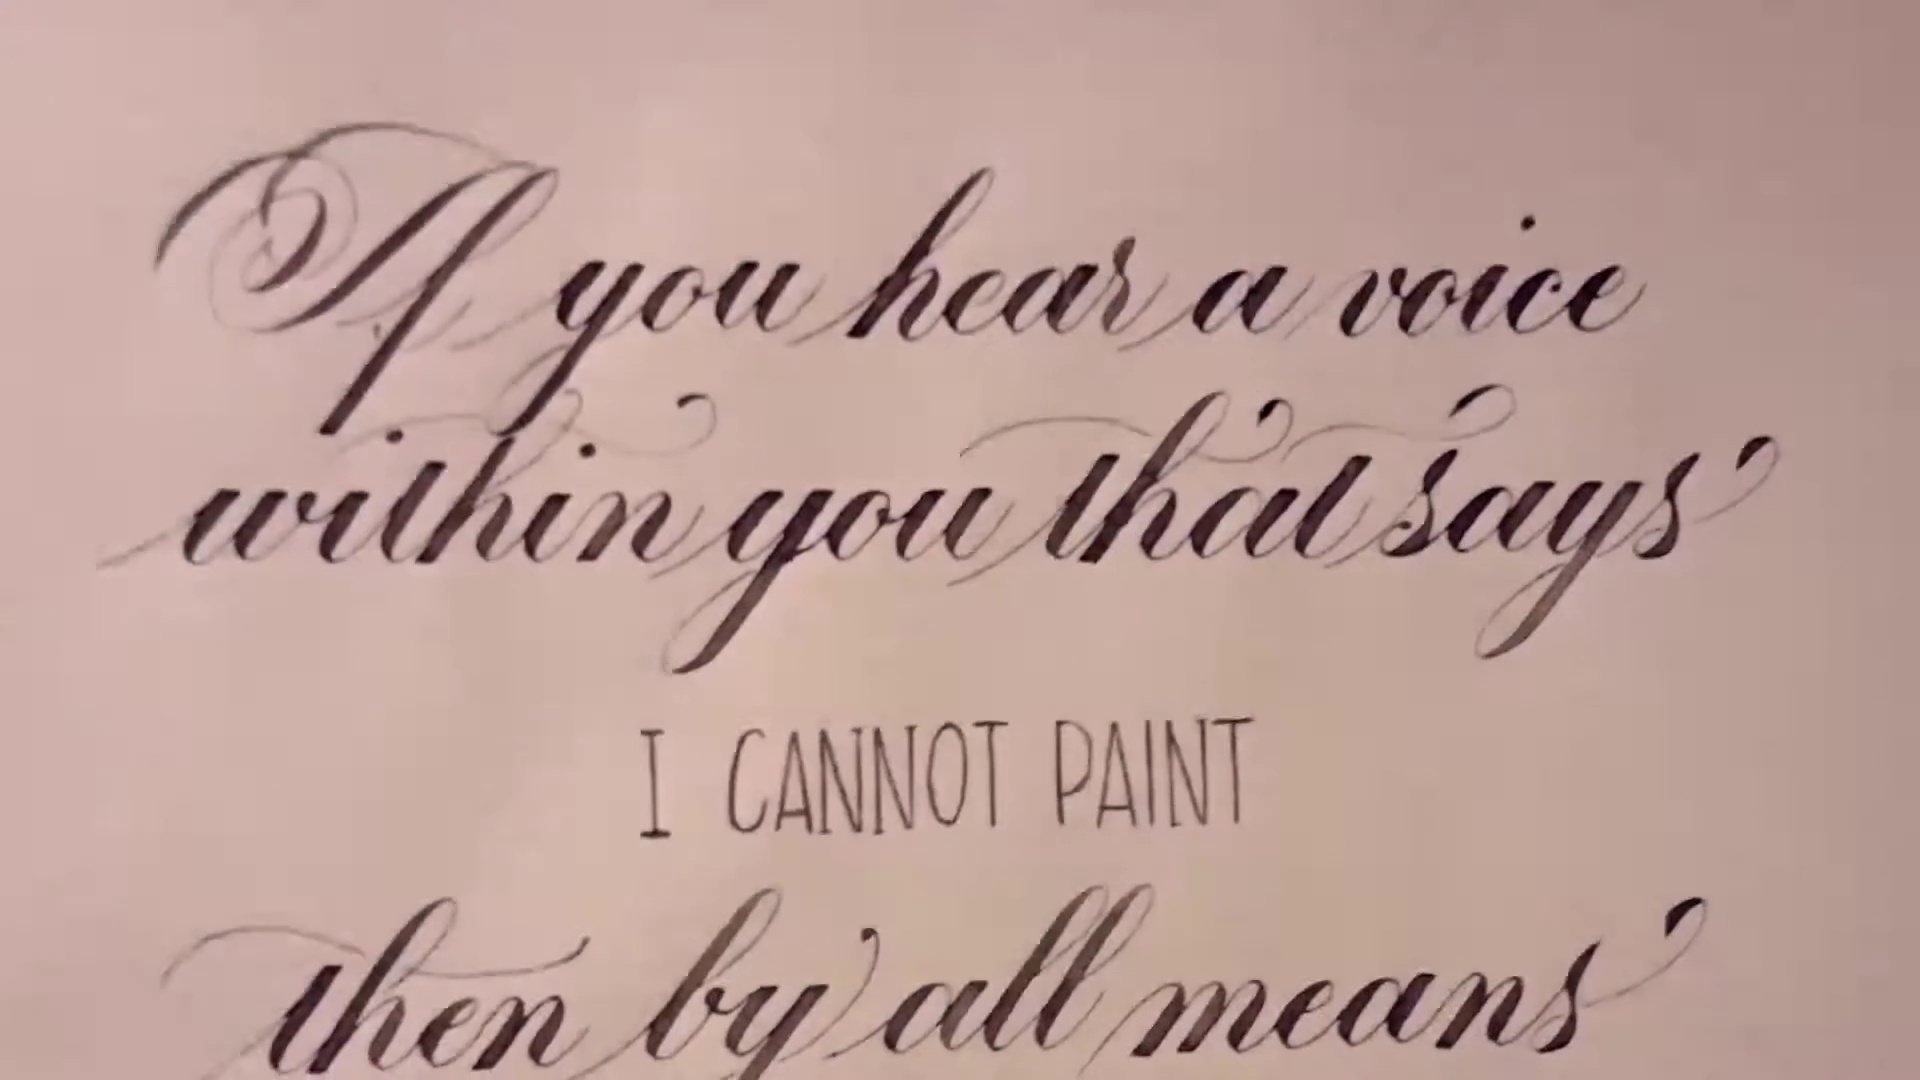 If you hear a voice
within you that says
I CANNOT PAINT
then by all means